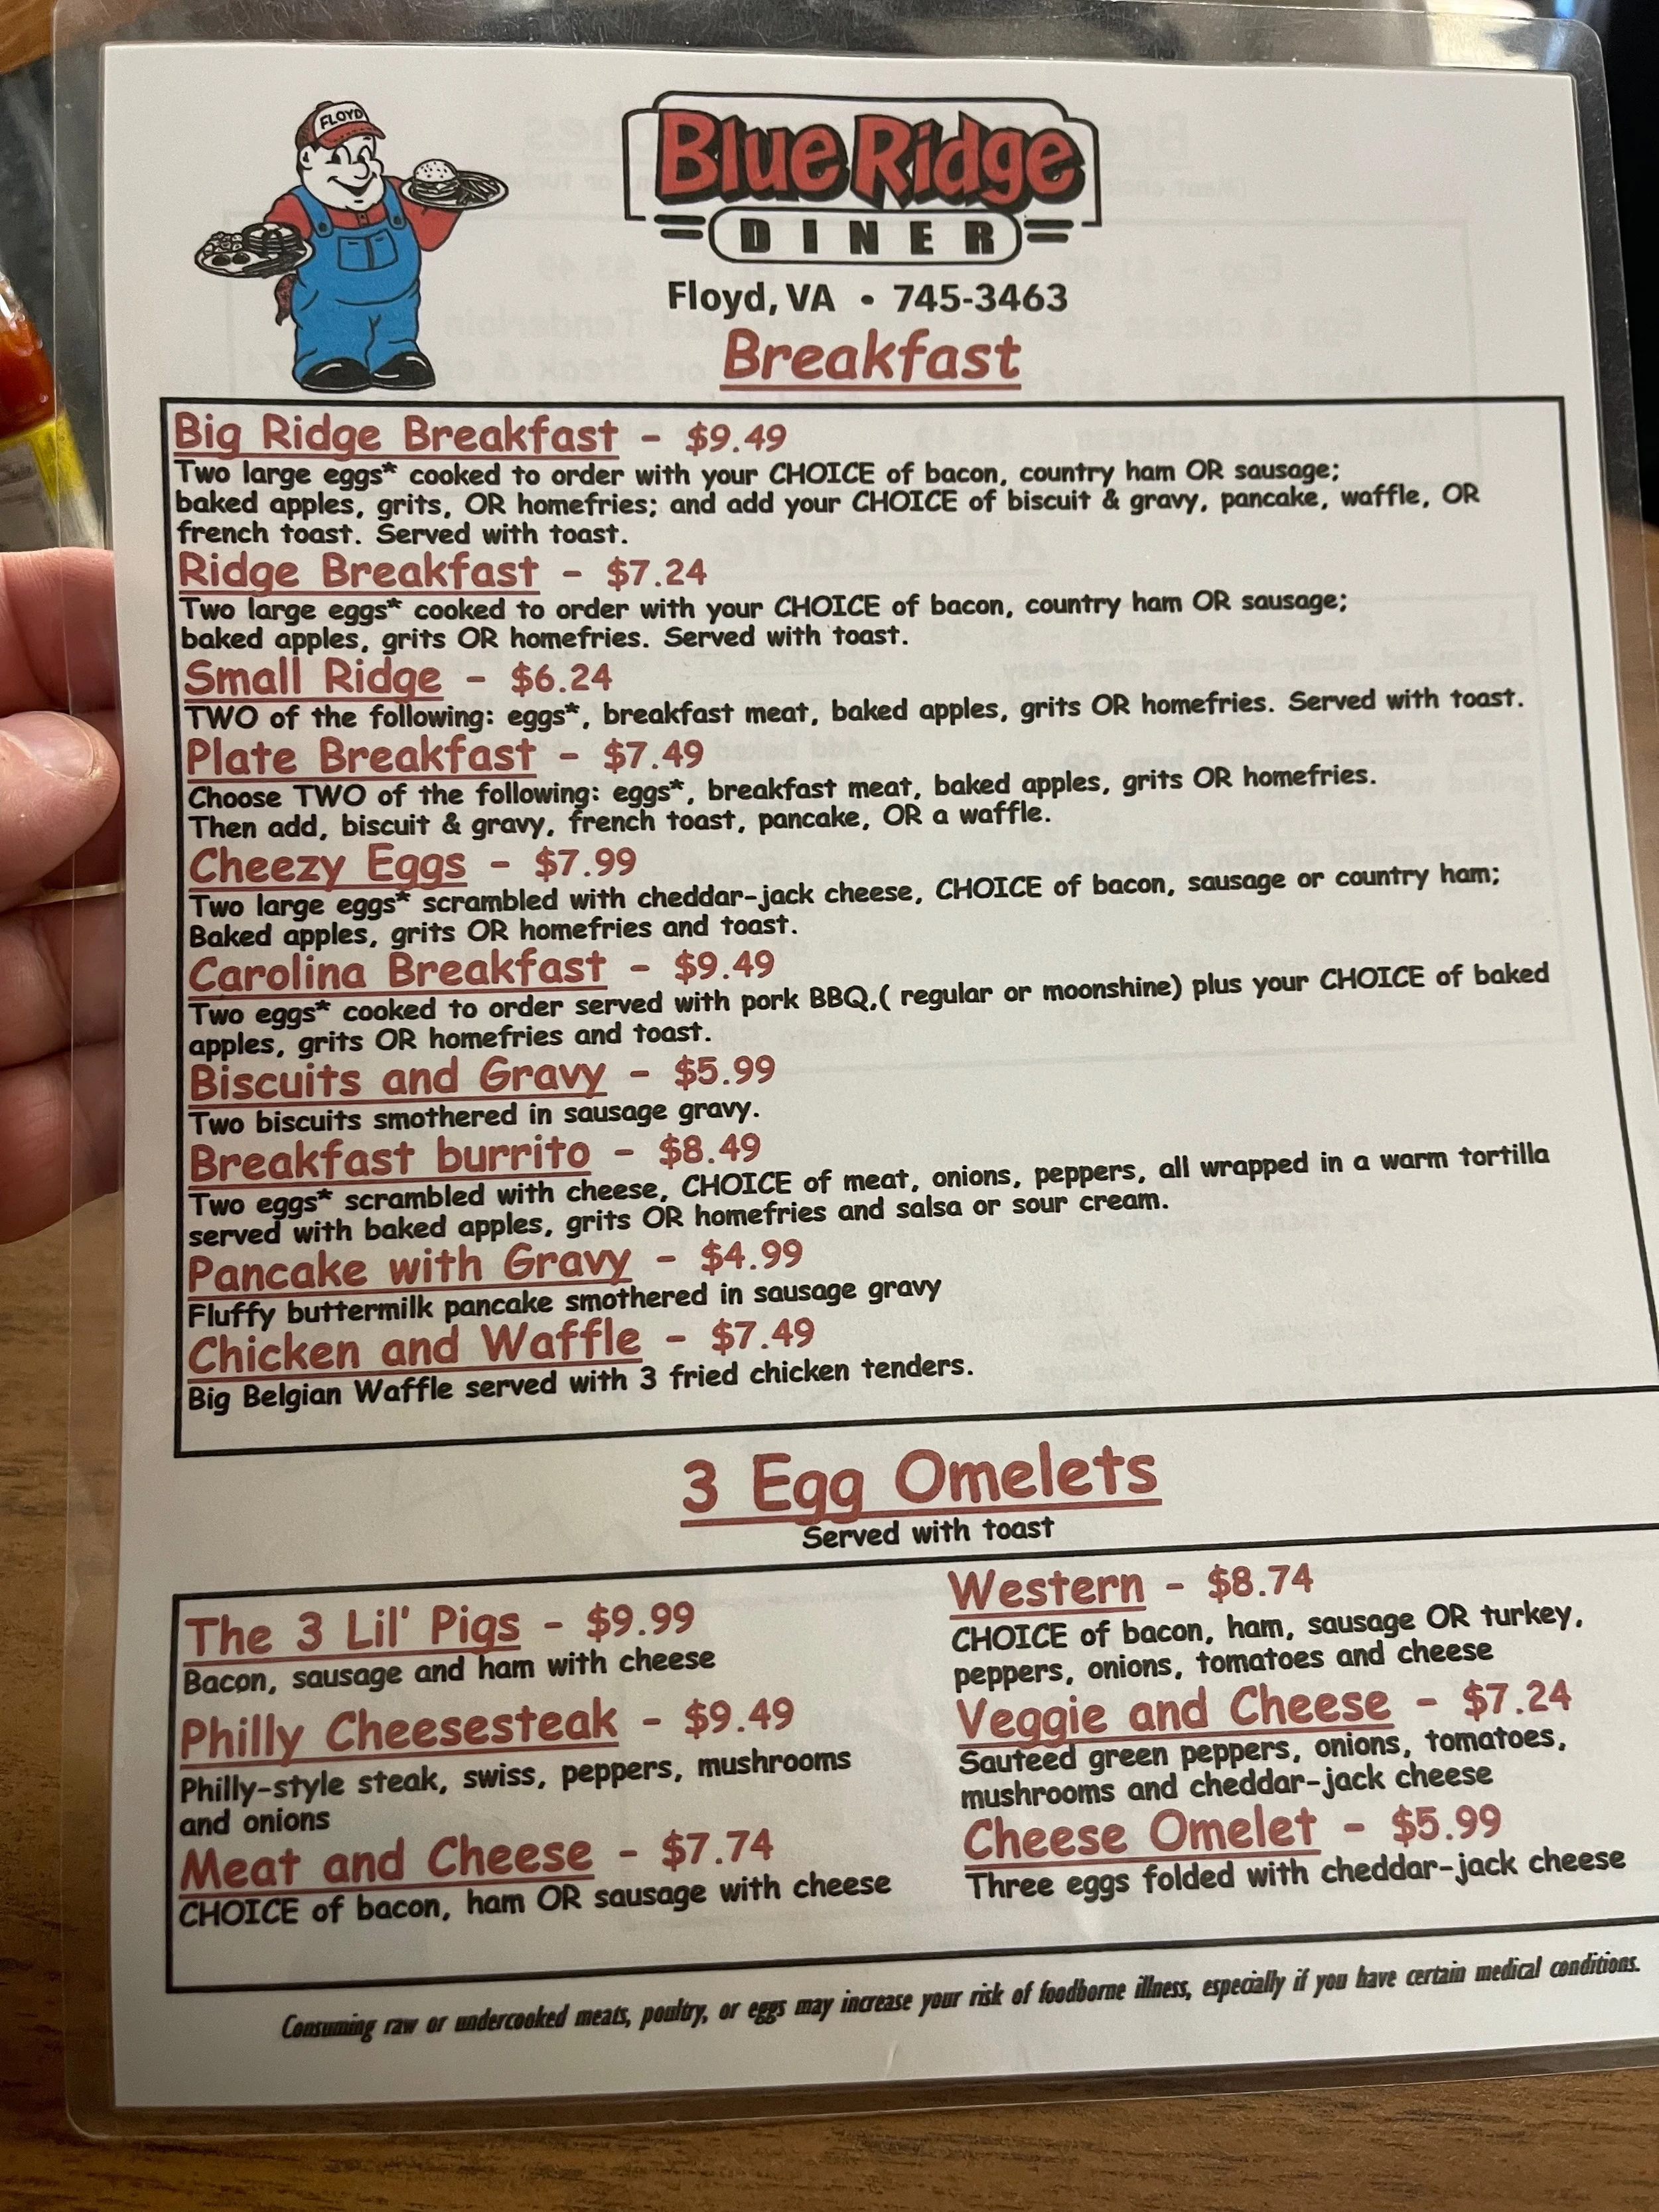 FLOYD
Blue Ridge
DINER
Floyd, VA • 745-3463
Breakfast
Big Ridge Breakfast - $9.49
Two large eggs* cooked to order with your CHOICE of bacon, country ham OR sausage;
baked apples, grits, OR homefries; and add your CHOICE of biscuit & gravy, pancake, waffle, OR
french toast. Served with toast.
Ridge Breakfast - $7.24
Two large eggs* cooked to order with your CHOICE of bacon, country ham OR sausage;
baked apples, grits OR homefries. Served with toast.
Small Ridge - $6.24
TWO of the following: eggs*, breakfast meat, baked apples, grits OR homefries. Served with toast.
Plate Breakfast - $7.49
Choose TWO of the following: eggs*, breakfast meat, baked apples, grits OR homefries.
Then add, biscuit & gravy, french toast, pancake, OR a waffle.
Cheezy Eggs - $7.99
Two large eggs* scrambled with cheddar-jack cheese, CHOICE of bacon, sausage or country ham;
Baked apples, grits OR homefries and toast.
Carolina Breakfast - $9.49
Two eggs* cooked to order served with pork BBQ,( regular or moonshine) plus your CHOICE of baked
apples, grits OR homefries and toast.
Biscuits and Gravy - $5.99
Two biscuits smothered in sausage gravy.
Breakfast burrito - $8.49
Two eggs* scrambled with cheese, CHOICE of meat, onions, peppers, all wrapped in a warm tortilla
served with baked apples, grits OR homefries and salsa or sour cream.
Pancake with Gravy - $4.99
Fluffy buttermilk pancake smothered in sausage gravy
Chicken and Waffle - $7.49
Big Belgian Waffle served with 3 fried chicken tenders.
3 Egg Omelets
Served with toast
The 3 Lil' Pigs - $9.99
Bacon, sausage and ham with cheese
Philly Cheesesteak - $9.49
Philly-style steak, swiss, peppers, mushrooms
and onions
Meat and Cheese - $7.74
CHOICE of bacon, ham OR sausage with cheese
Western - $8.74
CHOICE of bacon, ham, sausage OR turkey,
peppers, onions, tomatoes and cheese
Veggie and Cheese - $7.24
Sauteed green peppers, onions, tomatoes,
mushrooms and cheddar-jack cheese
Cheese Omelet - $5.99
Three eggs folded with cheddar-jack cheese
Consuming raw or undercooked meats, poultry, or eggs may increase your risk of foodborne illness, especially if you have certain medical conditions.